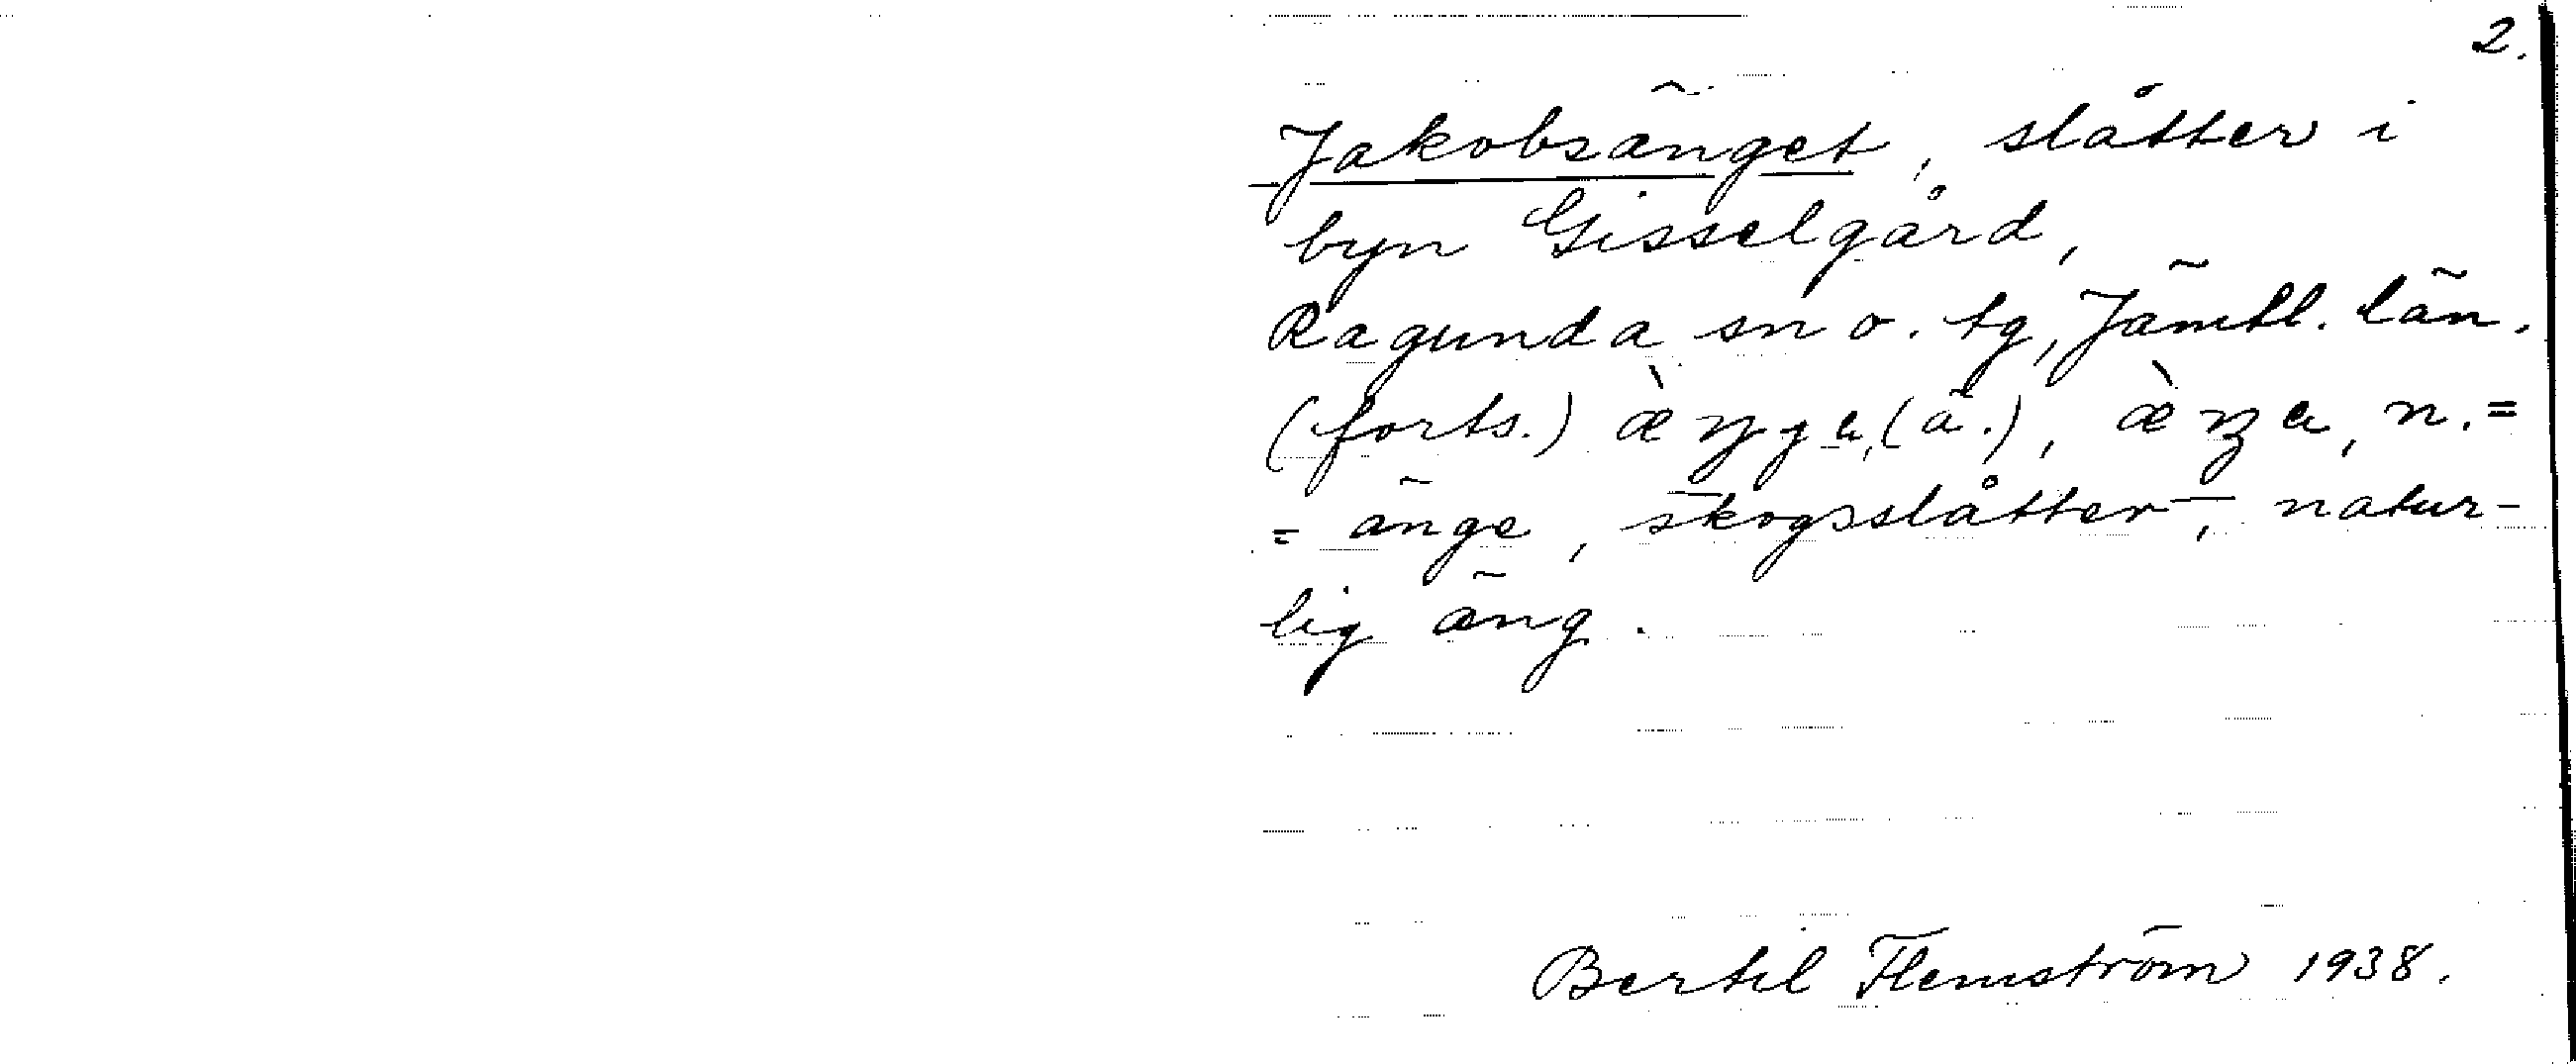 2.
Jakobsänget, slåtter i
byn Gisselgård,
Ragunda sn o. tg, Jämtl. län.
(forts.) (ä.), n. =
= änge, skogsslåtter, natur-
lig äng.
Bertil Flemström 1938.